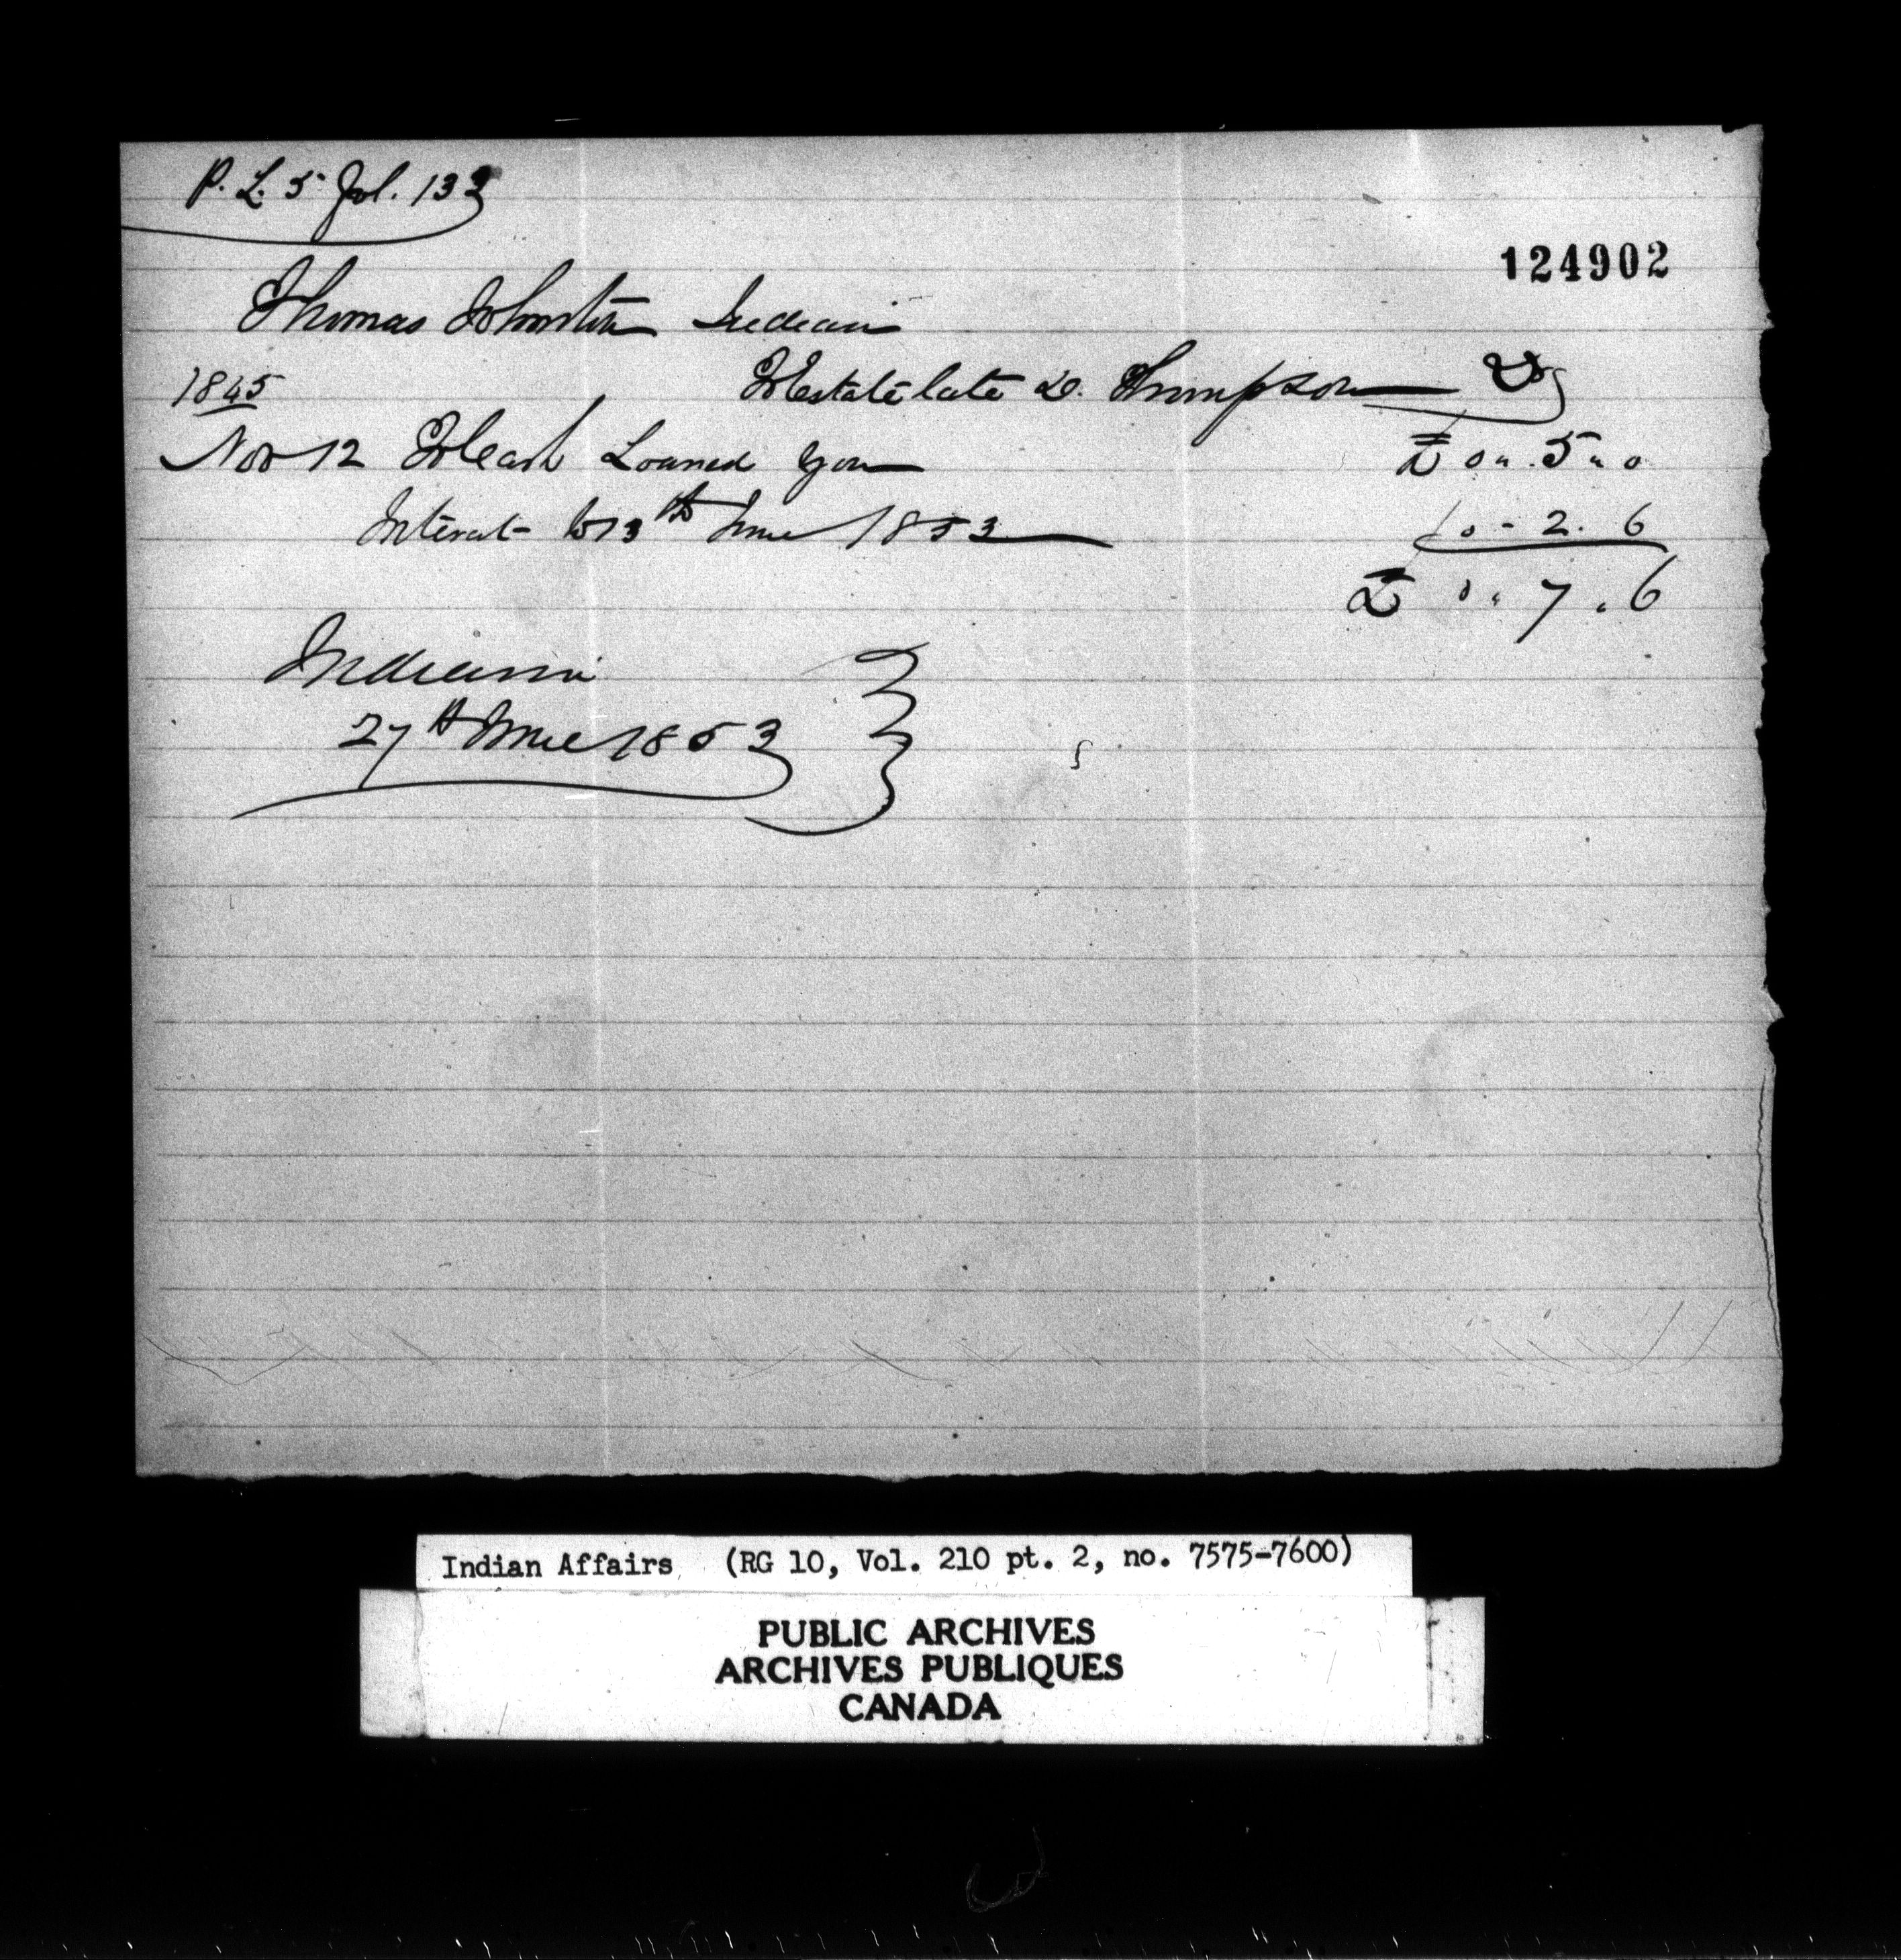 P. L. 5 Fol. 133
124902
Thomas Johnston Indian
1845 To Estate late D. Thompson Dr
Nov 12 To Cash Loaned you £ 0 " 5 " 0
Interest to 13th June 1853 0 - 2 . 6
£ 0 " 7 " 6
Indiana
27th June 1853
Indian Affairs (RG 10, Vol. 210 pt. 2, no. 7575-7600)
PUBLIC ARCHIVES
ARCHIVES PUBLIQUES
CANADA